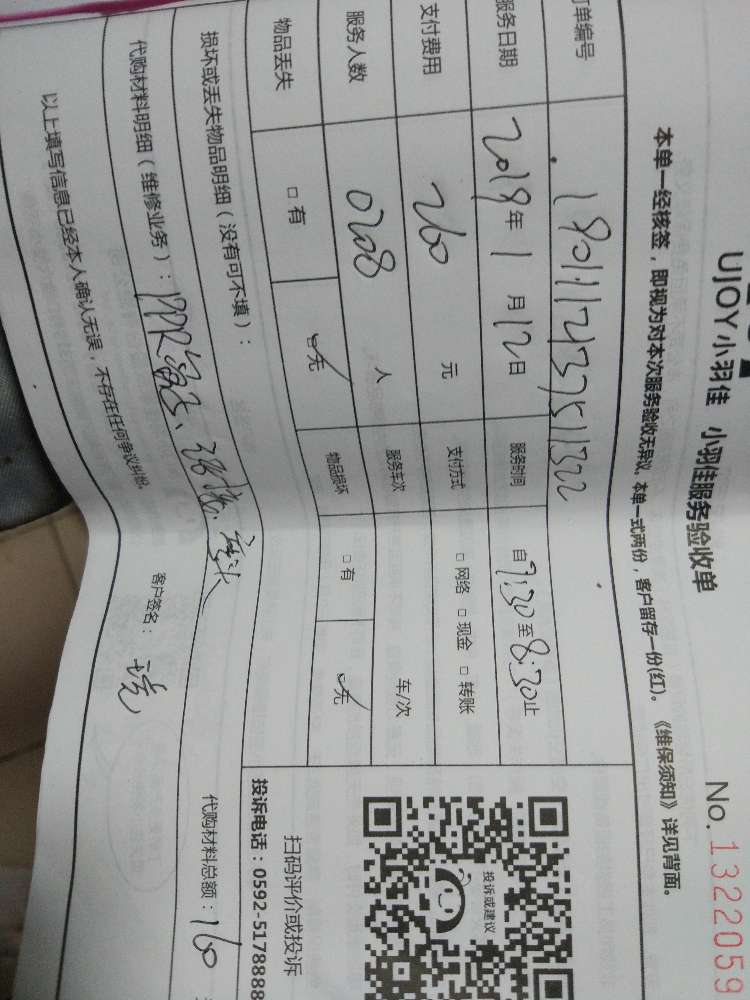 UJOY小羽佳 小羽佳服务验收单
No. 1322059
本单一经核签，即视为对本次服务验收无异议。本单一式两份，客户留存一份(红)。《维保须知》详见背面。
订单编号 1901112437511322
服务日期 2019年1月12日 服务时间 自7:30至8:30止
支付费用 260 元 支付方式 □ 网络 □ 现金 □ 转账
服务人数 0208 人 服务车次 车/次
物品丢失 □ 有 □ 无 物品损坏 □ 有 □ 无
损坏或丢失物品明细（没有可不填）：
代购材料明细（维修业务）：PPR
代购材料总额：160
以上填写信息已经本人确认无误，不存在任何争议纠纷。
客户签名：
投诉或建议
扫码评价或投诉
投诉电话：0592-5178888